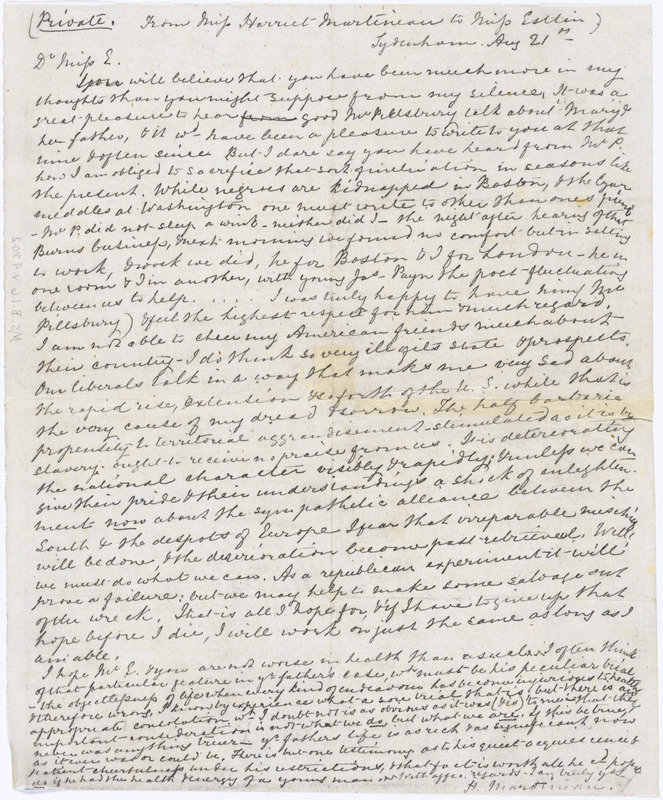 (Private. From Miss Harriet Martineau to Miss Estlin)
Sydenham. Aug 21st
Dr Miss E.
You will believe that you have been much more in my
thoughts than you might suppose from my silence. It was a
great pleasure to hear from good Mr Pillsbury talk about Mary &
her father, & it wd have been a pleasure to write to you at that
time & often since. But I dare say you have heard from Mr P.
how I am obliged to sacrifice that sort of inclination in seasons like
the present. While negroes are kidnapped in Boston, & the Czar
meddles at Washington one must write to other than one's friends
- Mr P. did not sleep a wink - neither did I - the night after hearing of that
Burns business, & next morning we found no comfort but in setting
to work, & work we did, he for Boston & I for London - he in
one room & I in another, with young Jas. Payn the poet fluctuating
between us to help. . . . . . I was truly happy to have him (Mr
Pillsbury) & feel the highest respect for him & much regard.
I am not able to cheer my American friends much about
their country - I do think so very ill of its state & prospects.
Our liberals talk in a way that makes me very sad about
the rapid rise, extension & so forth of the U. S. while that is
the very cause of my dread & sorrow. The half barbaric
propensity to territorial aggrandisement - stimulated as it is by
slavery - ought to receive no praise from us. It is deteriorating
the national character visibly & rapidly; & unless we can
give their pride & their understandings a shock of enlighten-
ment now about the sympathetic alliance between the
South & the despots of Europe I fear that irreparable mischief
will be done & the deterioration become past retrieval. Well,
we must do what we can. As a republican experiment it will
prove a failure; but we may help to make some salvage out
of the wreck. That is all I hope for, & if I have to give up that
hope before I die, I will work on just the same as long as I
am able.
I hope Mr E. & you are not worse in health than usual. I often think
of that particular feature in yr father's case, wh must be his peculiar trial,
- the objectlessness of life when every kind of endeavour has become injurious to health
& therefore wrong. I know by experience what a sore trial that is; but there is an
appropriate consolation wh I doubt not is as obvious as it was (& is) to me - that the
important consideration is not what we do, but what we are. If this be true, &
never was anything truer - yr father's life is as rich & as significant now
as it ever was or could be. There is but one testimony as to his quiet acquiescence &
patient cheerfulness under his restrictions, & that fact is worth all he cd hope
as if he had the health & energy of a young man. With affec. regards I am truly yrs
H. Martineau.